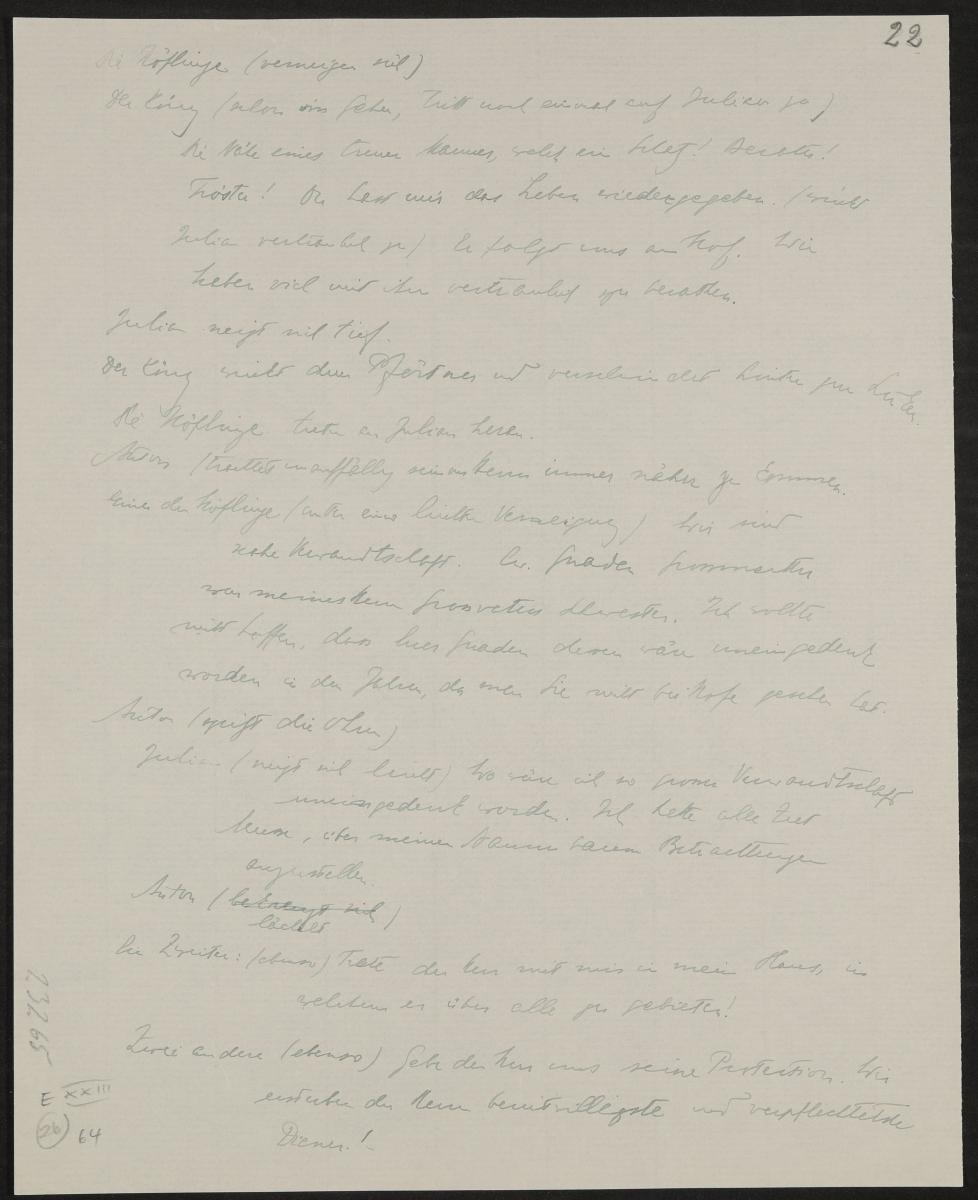 22
Die Höflinge (verneigen sich)
Der König (schon im Gehen, tritt noch einmal auf Julian zu)
Die Nähe eines treuen Mannes, welch ein Schatz! Berater!
Tröster! Du hast mir das Leben wiedergegeben. (winkt
Julian vertraulich zu) Er folgt uns an Hof. Wir
haben viel mit ihm vertraulich zu beraten.
Julian neigt sich tief.
Der König winkt dem Pförtner und verschwindet hinten zur Linken.
Die Höflinge treten an Julian heran.
Anton trachtet unauffällig seinem Herrn immer näher zu kommen.
Einer der Höflinge (unter einer leichten Verneigung) Wir sind
nahe Verwandtschaft. Ew. Gnaden Grossmutter
war meines Herrn Grossvaters Schwester. Ich wollte
nicht hoffen, dass Euer Gnaden dessen wäre uneingedenk
worden in den Jahren, da man Sie nicht bei Hofe gesehen hat.
Anton (spitzt die Ohren)
Julian (neigt sich leicht) Wo wäre ich so grosser Verwandtschaft
uneingedenk worden. Ich hatte alle Zeit
Musse, über meinen Stammbaum Betrachtungen
anzustellen.
Anton (bekreuzt sich)
lächelt
Ein Zweiter: (ebenso) Trete der Herr mit mir in mein Haus, in
welchem er über alle zu gebieten!
Zwei andere (ebenso) Gebe der Herr uns seine Protection. Wir
ersterben des Herrn bereitwilligste und verpflichtetste
Diener!
23265
E XXIII
26
64